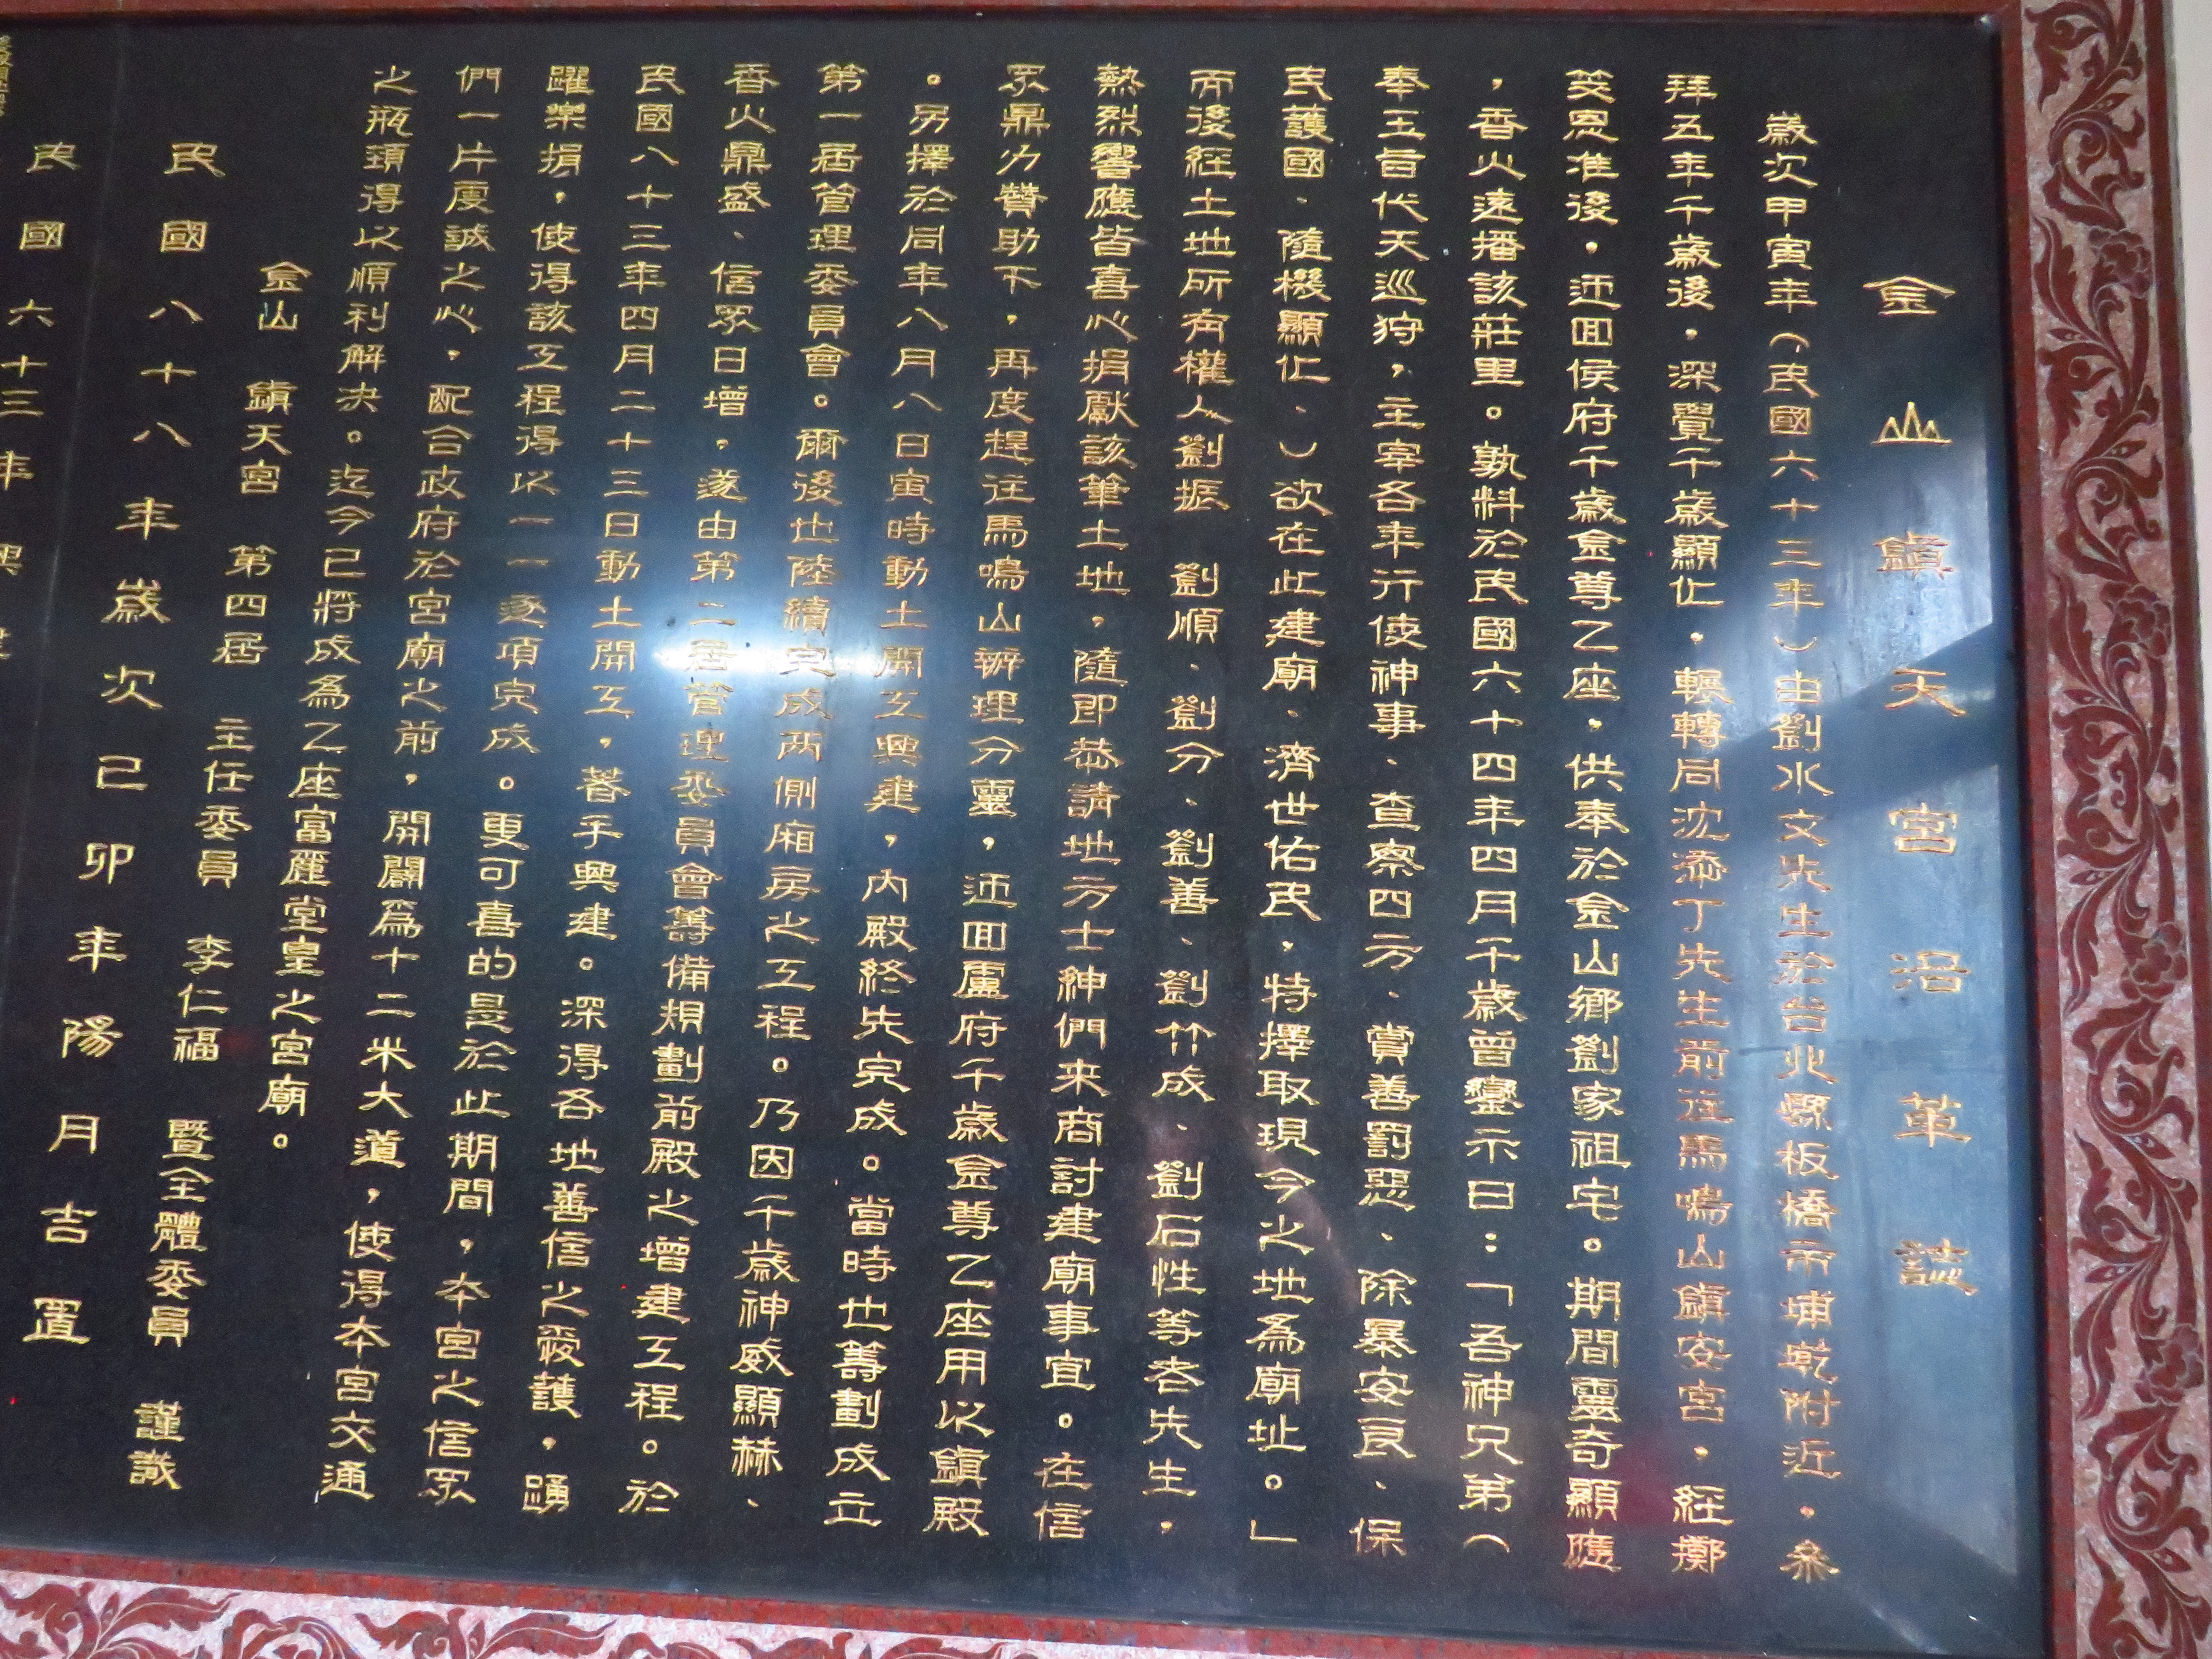 金山鎮天宮沿革誌
歲次甲寅年(民國六十三年)由劉水文先生於台北縣板橋市埔墘附近,叅
拜五年千歲後,深覺千歲顯化,輾轉同沈添丁先生前往馬鳴山鎮安宮,經擲
筊恩准後,迊回侯府千歲金尊乙座,供奉於金山鄉劉家祖宅。期間靈奇顯應
,香火遠播該莊里。孰料於民國六十四年四月千歲曾鑾示曰:「吾神兄弟(
奉玉旨代天巡狩,主宰各年行使神事、查察四方、賞善罰惡、除暴安良、保
民護國、隨機顯化、)欲在此建廟、濟世佑民,特擇取現今之地為廟址。」
而後經土地所有權人劉振 劉順、劉分、劉善、劉竹成、劉石性等老先生,
熱烈響應皆喜心捐獻該筆土地,隨即恭請地方士紳們来商討建廟事宜。在信
眾鼎力贊助下,再度趕往馬鳴山辦理分靈,迊回盧府千歲金尊乙座用以鎮殿
。另擇於同年八月八日寅時動土開工興建,內殿終先完成。當時也籌劃成立
第一居管理委員會。爾後也陸續完成兩側廂房之工程。乃因千歲神威顯赫、
香火鼎盛、信眾日增,遂由第二居管理委員會籌備規劃前殿之增建工程。於
民國八十三年四月二十三日動土開工,著手興建。深得各地善信之愛護,踴
躍樂捐,使得該工程得以一一逐項完成。更可喜的是於此期間,本宮之信眾
們一片虔誠之心,配合政府於宮廟之前,開闢為十二米大道,使得本宮交通
之瓶頸得以順利解決。迄今已將成為乙座富麗堂皇之宮廟。
金山 鎮天宮 第四居 主任委員 李仁福 暨全體委員 謹識
民國八十八年歲次己卯年陽月吉置
民國六十三年興